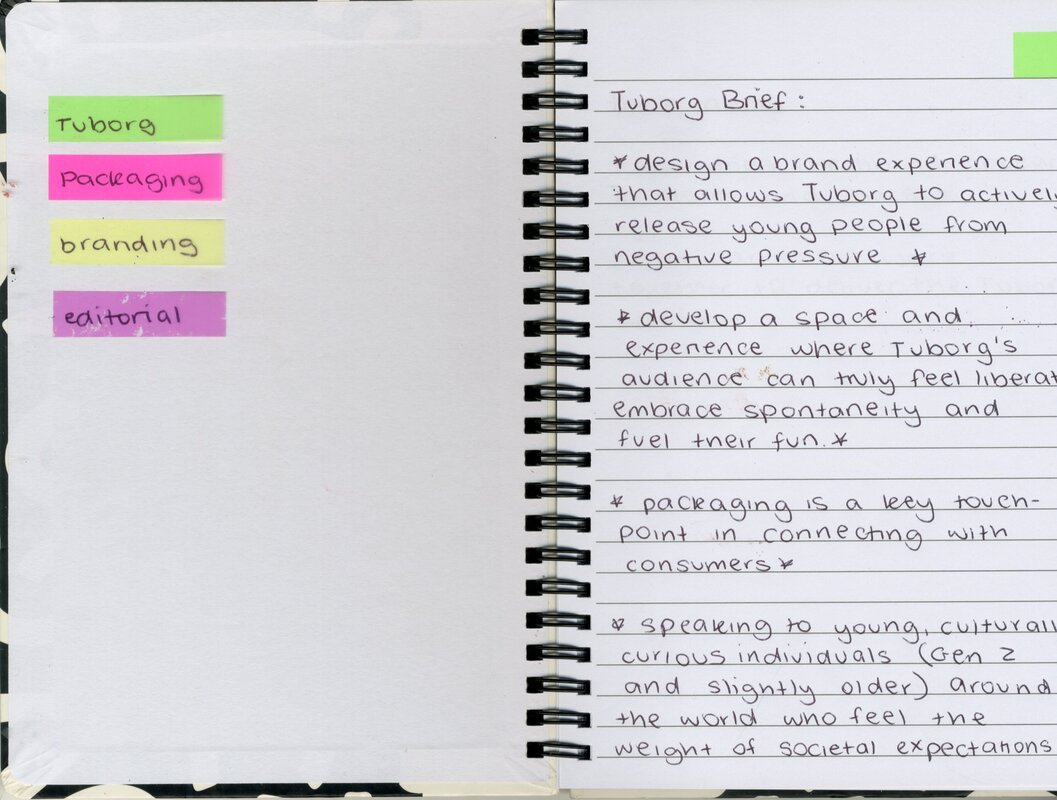 Tuborg
Packaging
branding
editorial
Tuborg Brief:
*design a brand experience
that allows Tuborg to actively
release young people from
negative pressure *
* develop a space and
experience where Tuborg's
audience can truly feel liberat
embrace spontaneity and
fuel their fun.*
* packaging is a key touch-
point in connecting with
consumers*
* speaking to young, culturall
curious individuals (Gen Z
and slightly older) around
the world who feel the
weight of societal expectations